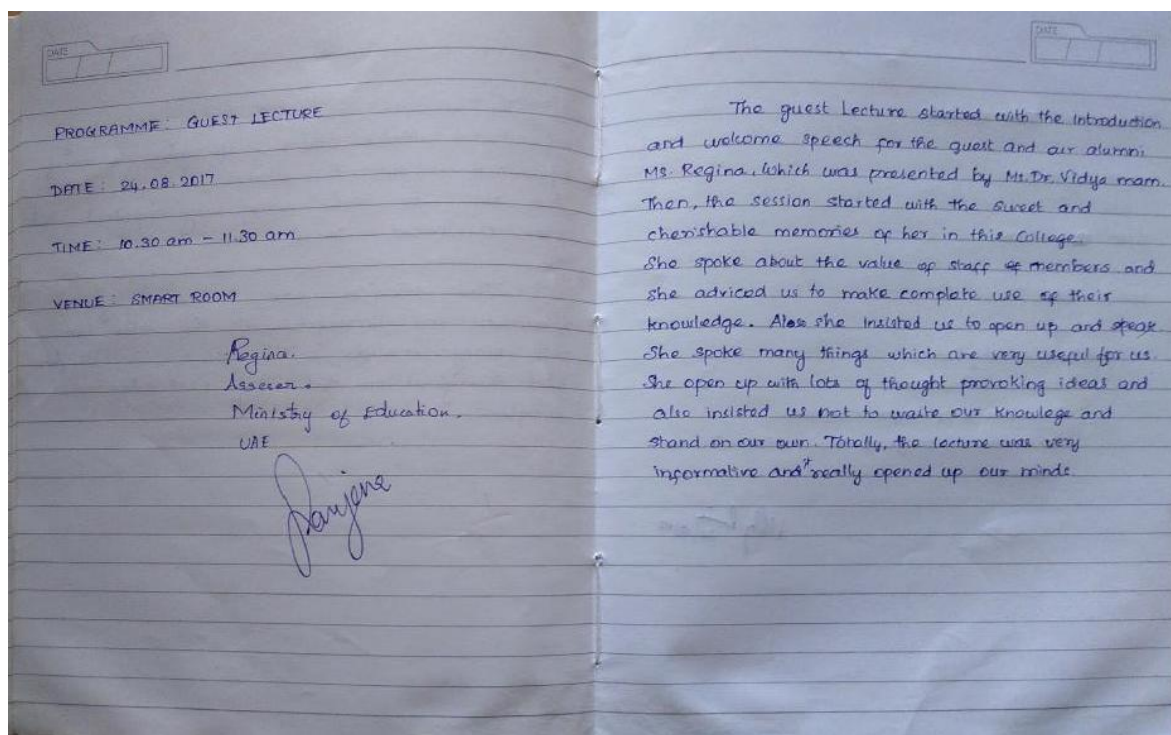 DATE
PROGRAMME: GUEST LECTURE
DATE: 24.08.2017
TIME: 10.30 am - 11.30 am
VENUE: SMART ROOM
Regina.
Assecer.
Ministry of Education.
UAE
DATE
The guest Lecture started with the Introduction
and welcome speech for the guest and our alumni
Ms. Regina, which was presented by Ms. Dr. Vidya mam.
Then, the session started with the sweet and
cherishable memories of her in this College.
She spoke about the value of staff members and
she adviced us to make complete use of their
knowledge. Also she insisted us to open up and speak
She spoke many things which are very useful for us.
She open up with lots of thought provoking ideas and
also insisted us not to waste our knowlege and
stand on our own. Totally, the lecture was very
informative and it really opened up our minds.